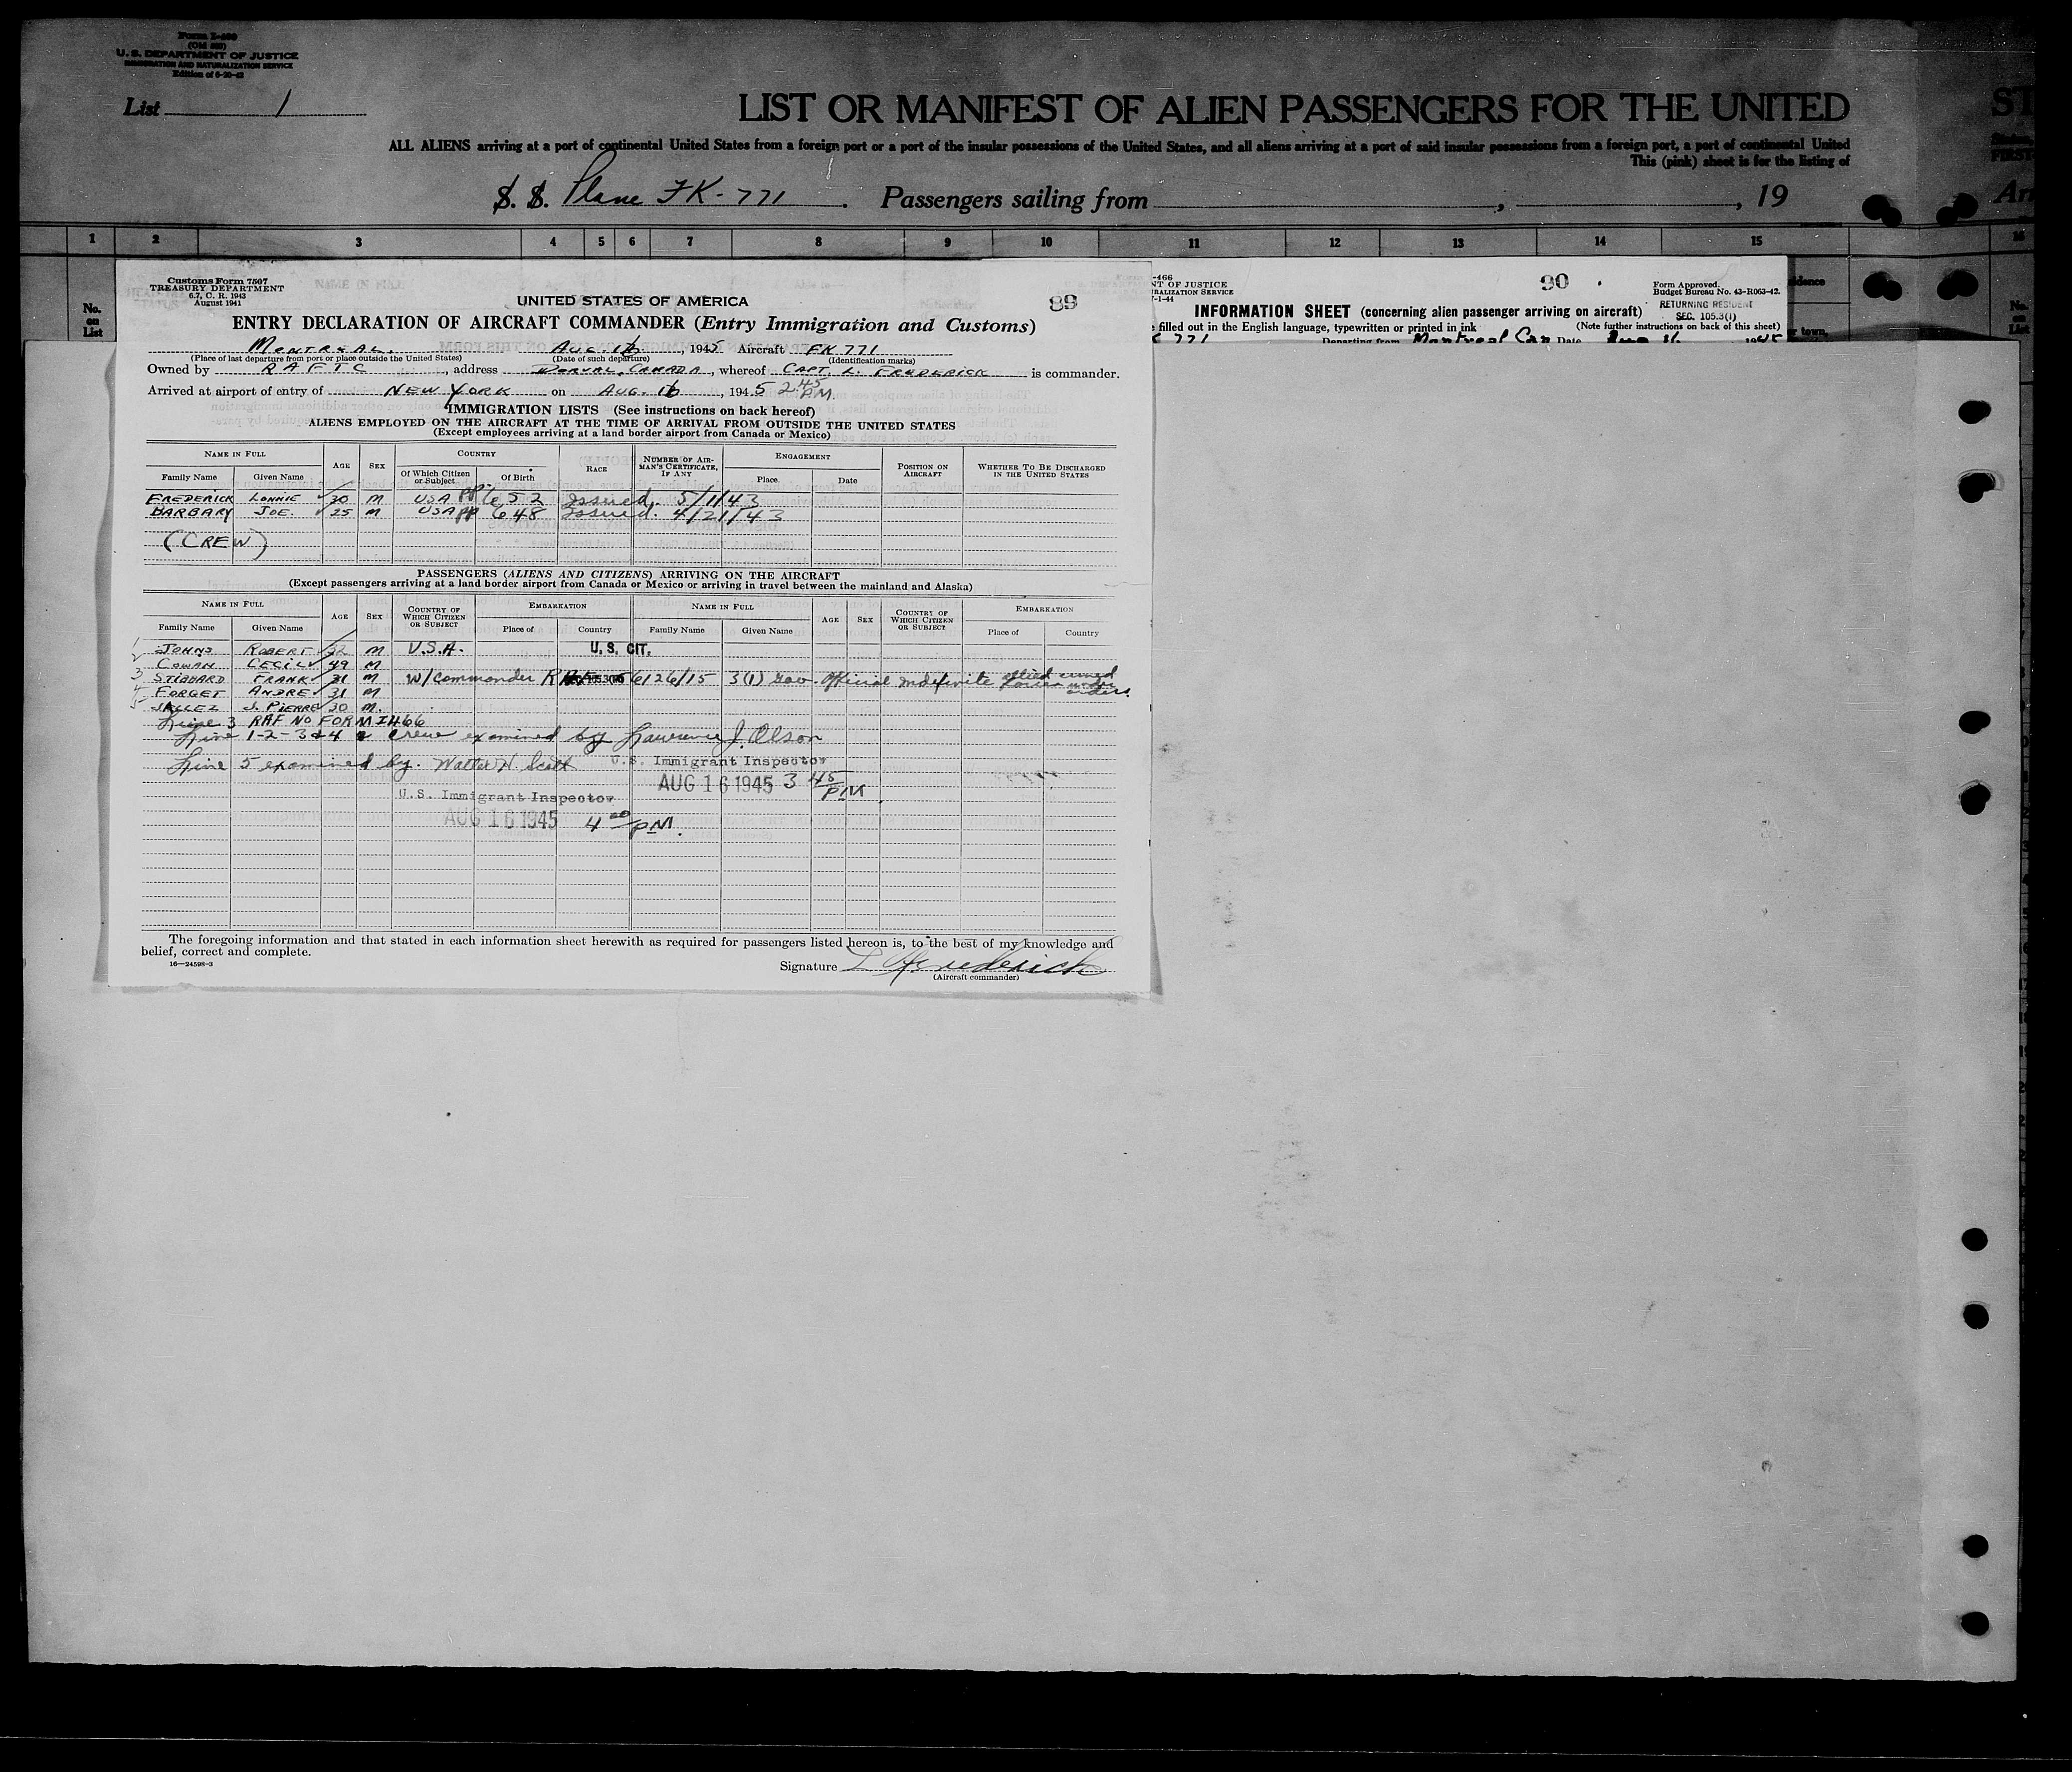 Form I-466
U. S. DEPARTMENT OF JUSTICE
IMMIGRATION AND NATURALIZATION SERVICE
List 1
LIST OR MANIFEST OF ALIEN PASSENGERS FOR THE UNITED
ALL ALIENS arriving at a port of continental United States from a foreign port or a port of the insular possessions of the United States, and all aliens arriving at a port of said insular possessions from a foreign port, a port of continental United
This (pink) sheet is for the listing of
S. S. Plane FK-771. Passengers sailing from , , 19
1 2 3 4 5 6 7 8 9 10 11 12 13 14 15 16
No. on List
Customs Form 7507
TREASURY DEPARTMENT
6.7, C. R. 1943
August 1941
UNITED STATES OF AMERICA
89
ENTRY DECLARATION OF AIRCRAFT COMMANDER (Entry Immigration and Customs)
MONTREAL. AUG. 16, 1945 Aircraft FK 771
(Place of last departure from port or place outside the United States) (Date of such departure) (Identification marks)
Owned by RAFTC, address DORVAL, CANADA, whereof CAPT. L. FREDERICK is commander.
Arrived at airport of entry of NEW YORK on AUG. 16, 1945 2 45 P.M.
IMMIGRATION LISTS (See instructions on back hereof)
ALIENS EMPLOYED ON THE AIRCRAFT AT THE TIME OF ARRIVAL FROM OUTSIDE THE UNITED STATES
(Except employees arriving at a land border airport from Canada or Mexico)
NAME IN FULL AGE SEX COUNTRY RACE NUMBER OF AIRMAN'S CERTIFICATE, IF ANY ENGAGEMENT POSITION ON AIRCRAFT WHETHER TO BE DISCHARGED IN THE UNITED STATES
Family Name Given Name Of Which Citizen or Subject Of Birth Place. Date
FREDERICK LONNIE 30 M USA pp 652 Issued. 5/1/43
BARBARY JOE. 25 M USA pp 648 Issued. 4/21/43
(CREW)
PASSENGERS (ALIENS AND CITIZENS) ARRIVING ON THE AIRCRAFT
(Except passengers arriving at a land border airport from Canada or Mexico or arriving in travel between the mainland and Alaska)
NAME IN FULL AGE SEX COUNTRY OF WHICH CITIZEN OR SUBJECT EMBARKATION NAME IN FULL AGE SEX COUNTRY OF WHICH CITIZEN OR SUBJECT EMBARKATION
Family Name Given Name Place of Country Family Name Given Name Place of Country
1 JOHNS ROBERT 32 M U.S.A. U. S. CIT.
2 COWAN CECIL 49 M
3 STIBBARD FRANK 31 M w/ Commander 6126/15 3(1) Gov. Official indefinite
4 FORGET ANDRE 31 M
5 JALLEZ J. PIERRE 30 M.
Line 3 RAF NO FORM I466
Line 1-2-3 & 4 & Crew examined by Lawrence J. Olson
Line 5 examined by. Walter N. Scott U.S. Immigrant Inspector
AUG 16 1945 3 45 P.M.
U.S. Immigrant Inspector
AUG 16 1945 4 00 P.M.
The foregoing information and that stated in each information sheet herewith as required for passengers listed hereon is, to the best of my knowledge and
belief, correct and complete.
16—24598-3
Signature L Frederick
(Aircraft commander)
-466
NT OF JUSTICE
RALIZATION SERVICE
-1-44
90
Form Approved.
Budget Bureau No. 43-R063-42.
INFORMATION SHEET (concerning alien passenger arriving on aircraft)
RETURNING RESIDENT
SEC. 105.3(1)
filled out in the English language, typewritten or printed in ink (Note further instructions on back of this sheet)
771 Departing from Montreal Can Date Aug 16 1945